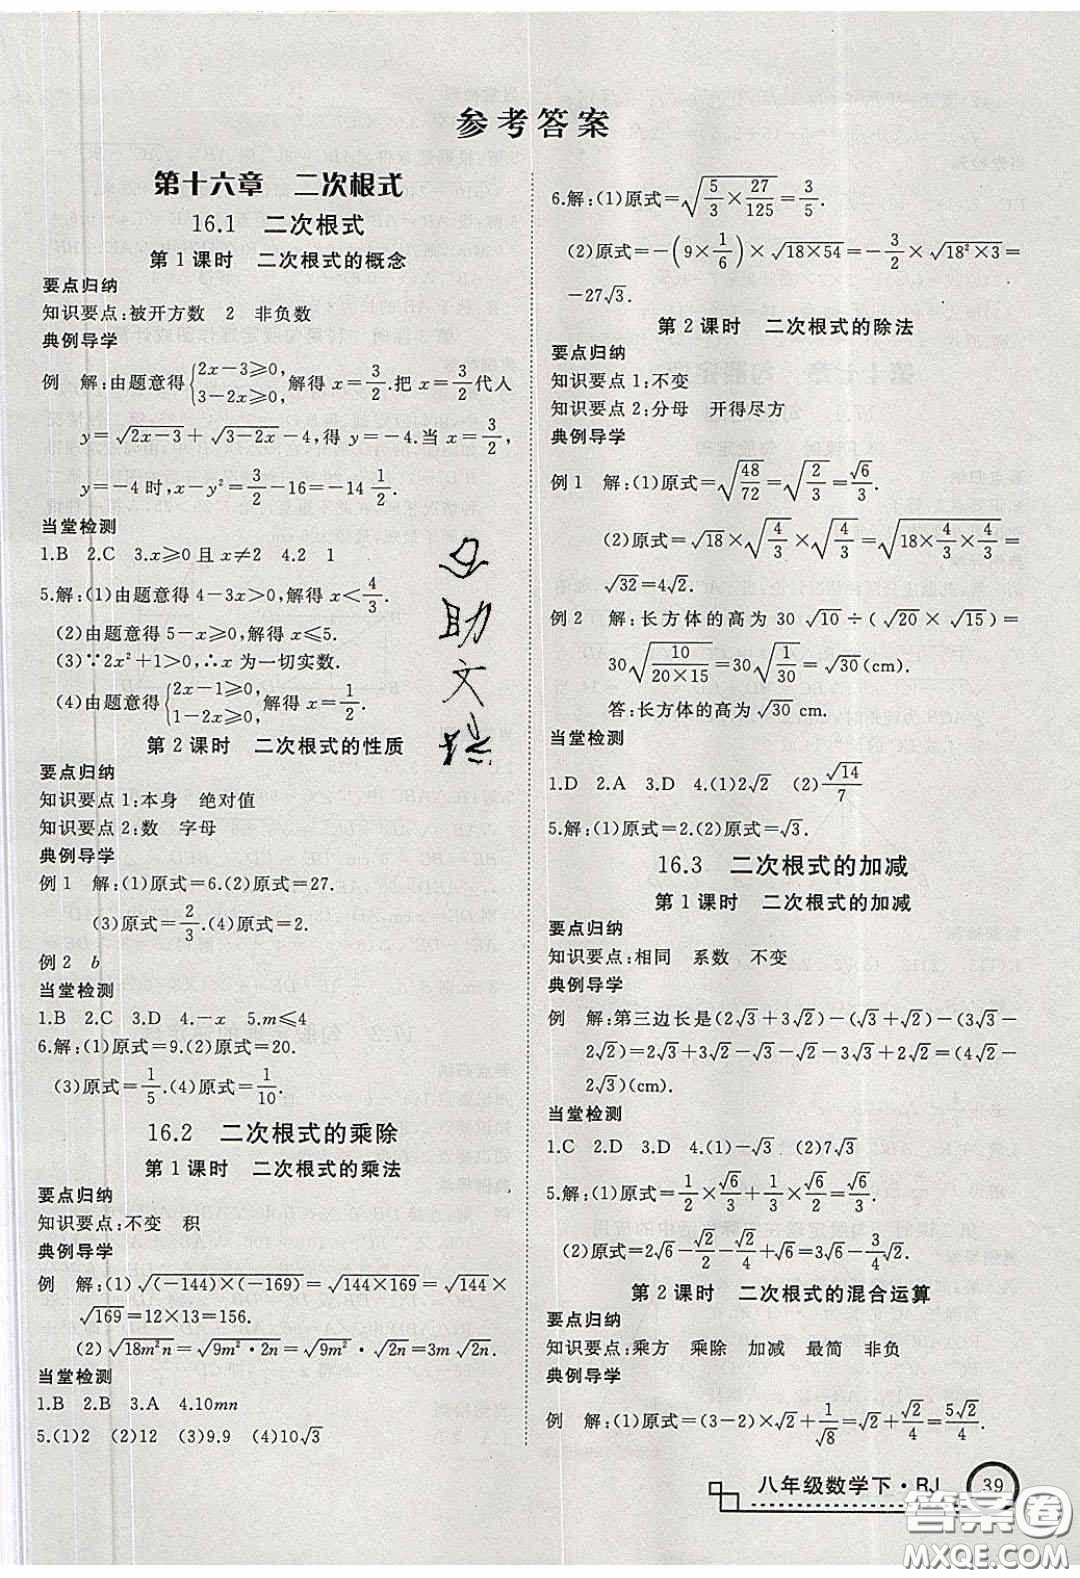 参考答案
第十六章　二次根式
16.1　二次根式
第 1 课时　二次根式的概念
要点归纳
知识要点:被开方数　2　非负数
典例导学
例　解:由题意得{2x-3≥0, 3-2x≥0,解得 x=3/2.把 x=3/2代入
y=√(2x-3)+√(3-2x)-4,得 y=-4.当 x=3/2,
y=-4 时,x-y²=3/2-16=-14 1/2.
当堂检测
1.B　2.C　3.x≥0 且 x≠2　4.2　1
5.解:(1)由题意得 4-3x>0,解得 x<4/3.
(2)由题意得 5-x≥0,解得 x≤5.
(3)∵2x²+1>0,∴x 为一切实数.
(4)由题意得{2x-1≥0, 1-2x≥0,解得 x=1/2.
第 2 课时　二次根式的性质
要点归纳
知识要点 1:本身　绝对值
知识要点 2:数　字母
典例导学
例 1　解:(1)原式=6.(2)原式=27.
(3)原式=2/3.(4)原式=2.
例 2　b
当堂检测
1.B　2.C　3.D　4.-x　5.m≤4
6.解:(1)原式=9.(2)原式=20.
(3)原式=1/5.(4)原式=1/10.
16.2　二次根式的乘除
第 1 课时　二次根式的乘法
要点归纳
知识要点:不变　积
典例导学
例　解:(1)√((-144)×(-169))=√(144×169)=√144×
√169=12×13=156.
(2)√(18m²n)=√(9m²·2n)=√(9m²)·√(2n)=3m√(2n).
当堂检测
1.B　2.B　3.A　4.10mn
5.(1)2　(2)12　(3)9.9　(4)10√3
6.解:(1)原式=√(5/3×27/125)=3/5.
(2)原式=-(9×1/6)×√(18×54)=-3/2×√(18²×3)=
-27√3.
第 2 课时　二次根式的除法
要点归纳
知识要点 1:不变
知识要点 2:分母　开得尽方
典例导学
例 1　解:(1)原式=√(48/72)=√(2/3)=√6/3.
(2)原式=√18×√(4/3)×√(4/3)=√(18×4/3×4/3)=
√32=4√2.
例 2　解:长方体的高为 30√10÷(√20×√15)=
30√(10/(20×15))=30√(1/30)=√30(cm).
答:长方体的高为√30 cm.
当堂检测
1.D　2.A　3.D　4.(1)2√2　(2)√14/7
5.解:(1)原式=2.(2)原式=√3.
16.3　二次根式的加减
第 1 课时　二次根式的加减
要点归纳
知识要点:相同　系数　不变
典例导学
例　解:第三边长是(2√3+3√2)-(√3+√2)-(3√3-
2√2)=2√3+3√2-√3-√2-3√3+2√2=(4√2-
2√3)(cm).
当堂检测
1.C　2.D　3.D　4.(1)-√3　(2)7√3
5.解:(1)原式=1/2×√6/3+1/3×√6/2=√6/3.
(2)原式=2√6-√2/2-√2/4+√6=3√6-3/4√2.
第 2 课时　二次根式的混合运算
要点归纳
知识要点:乘方　乘除　加减　最简　非负
典例导学
例　解:(1)原式=(3-2)×√2+1/√8=√2+√2/4=5√2/4.
八年级数学下·RJ　39
答案圈
MXQE.COM